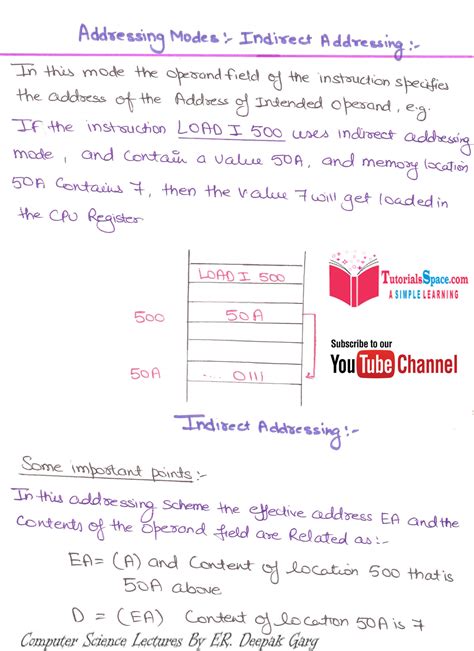 Addressing Modes:- Indirect Addressing:-
In this mode the operand field of the instruction specifies
the address of the Address of Intended operand, e.g.
If the instruction LOAD I 500 uses indirect addressing
mode, and contain a value 50A, and memory location
50A Contains 7, then the value 7 will get loaded in
the CPU Register
LOAD I 500
500 50A
50A ... 0111
TutorialsSpace.com
A SIMPLE LEARNING
Subscribe to our
YouTube Channel
Indirect Addressing:-
Some important points:-
In this addressing scheme the effective address EA and the
Contents of the operand field are Related as:-
EA = (A) and Content of location 500 that is
50A above
D = (EA) Content of location 50A is 7
Computer Science Lectures By ER. Deepak Garg